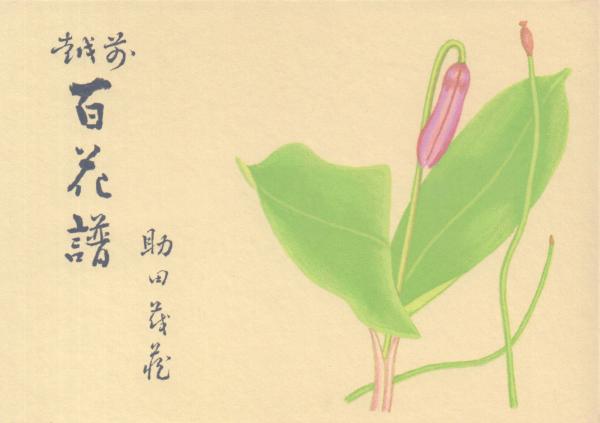 越前
百花譜
助田茂蔵